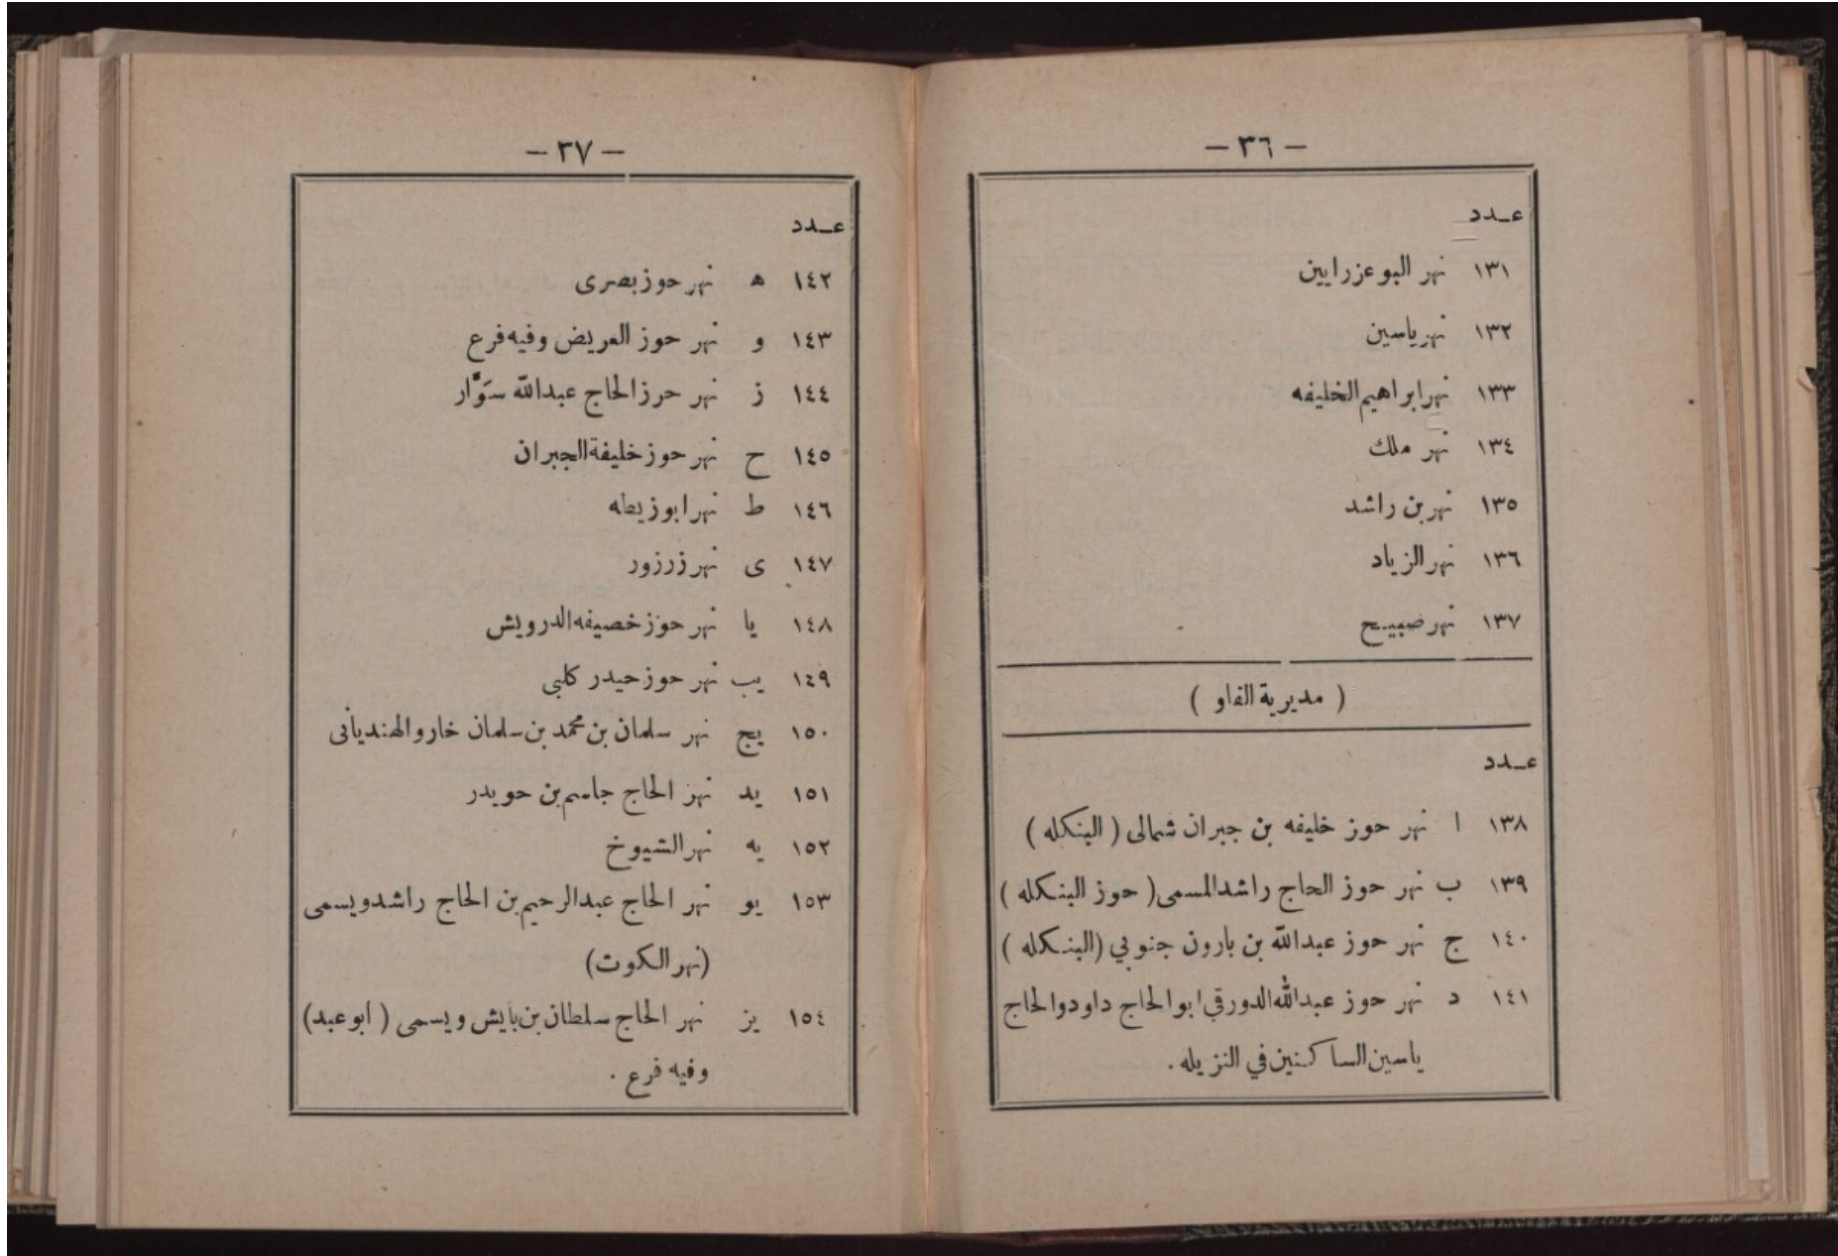 — ٣٦ —
عـدد
١٣١ نهر البو عزرايين
١٣٢ نهر ياسين
١٣٣ نهر ابراهيم الخليفه
١٣٤ نهر ملك
١٣٥ نهر بن راشد
١٣٦ نهر الزياد
١٣٧ نهر صبيح
( مديرية الفاو )
عـدد
١٣٨ ا نهر حوز خليفه بن جبران شمالى ( البنكله )
١٣٩ ب نهر حوز الحاج راشد المسمى ( حوز البنكله )
١٤٠ ج نهر حوز عبدالله بن بارون جنوبي (البنكله )
١٤١ د نهر حوز عبدالله الدورقي ابو الحاج داود والحاج
ياسين الساكنين في النزيله .
— ٣٧ —
عـدد
١٤٢ ه نهر حوز بصرى
١٤٣ و نهر حوز العريض وفيه فرع
١٤٤ ز نهر حرز الحاج عبدالله سَوَّار
١٤٥ ح نهر حوز خليفة الجبران
١٤٦ ط نهر ابو زيطه
١٤٧ ى نهر زرزور
١٤٨ يا نهر حوز خصيفه الدرويش
١٤٩ يب نهر حوز حيدر كلبى
١٥٠ يج نهر سلمان بن محمد بن سلمان خارو الهنديانى
١٥١ يد نهر الحاج جاسم بن حويدر
١٥٢ يه نهر الشيوخ
١٥٣ يو نهر الحاج عبدالرحيم بن الحاج راشد ويسمى
(نهر الكوت)
١٥٤ يز نهر الحاج سلطان بن بايش ويسمى ( ابو عبد)
وفيه فرع .